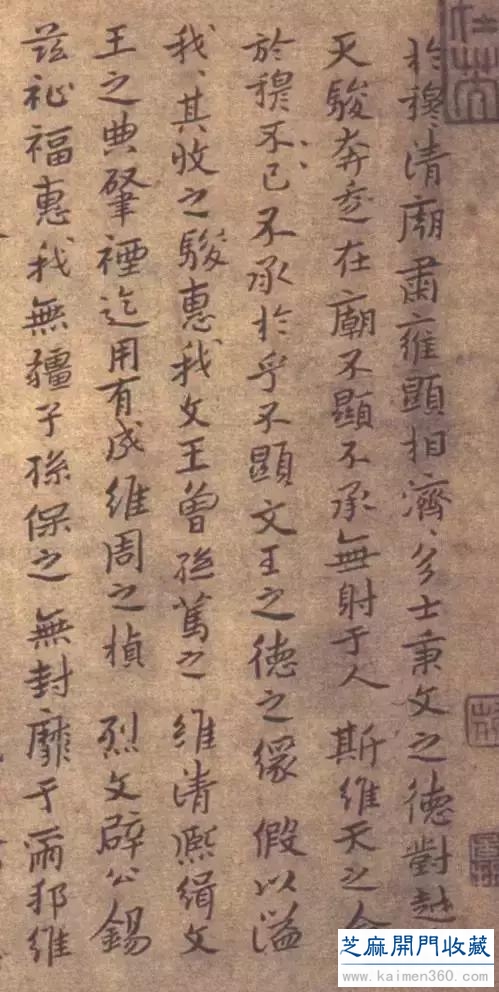 於穆清廟肅雍顯相濟、多士秉文之德對越
天駿奔走在廟不顯不承無射于人 斯維天之命
於穆不已不承於乎不顯文王之德之 假以溢
我、其收之駿惠我文王曾孫篤之 維清熙緝文
王之典肇禋迄用有成維周之楨 烈文辟公錫
茲祉福惠我無疆子孫保之 無封靡于爾邦維
芝麻開門收藏
www.kaimen360.com